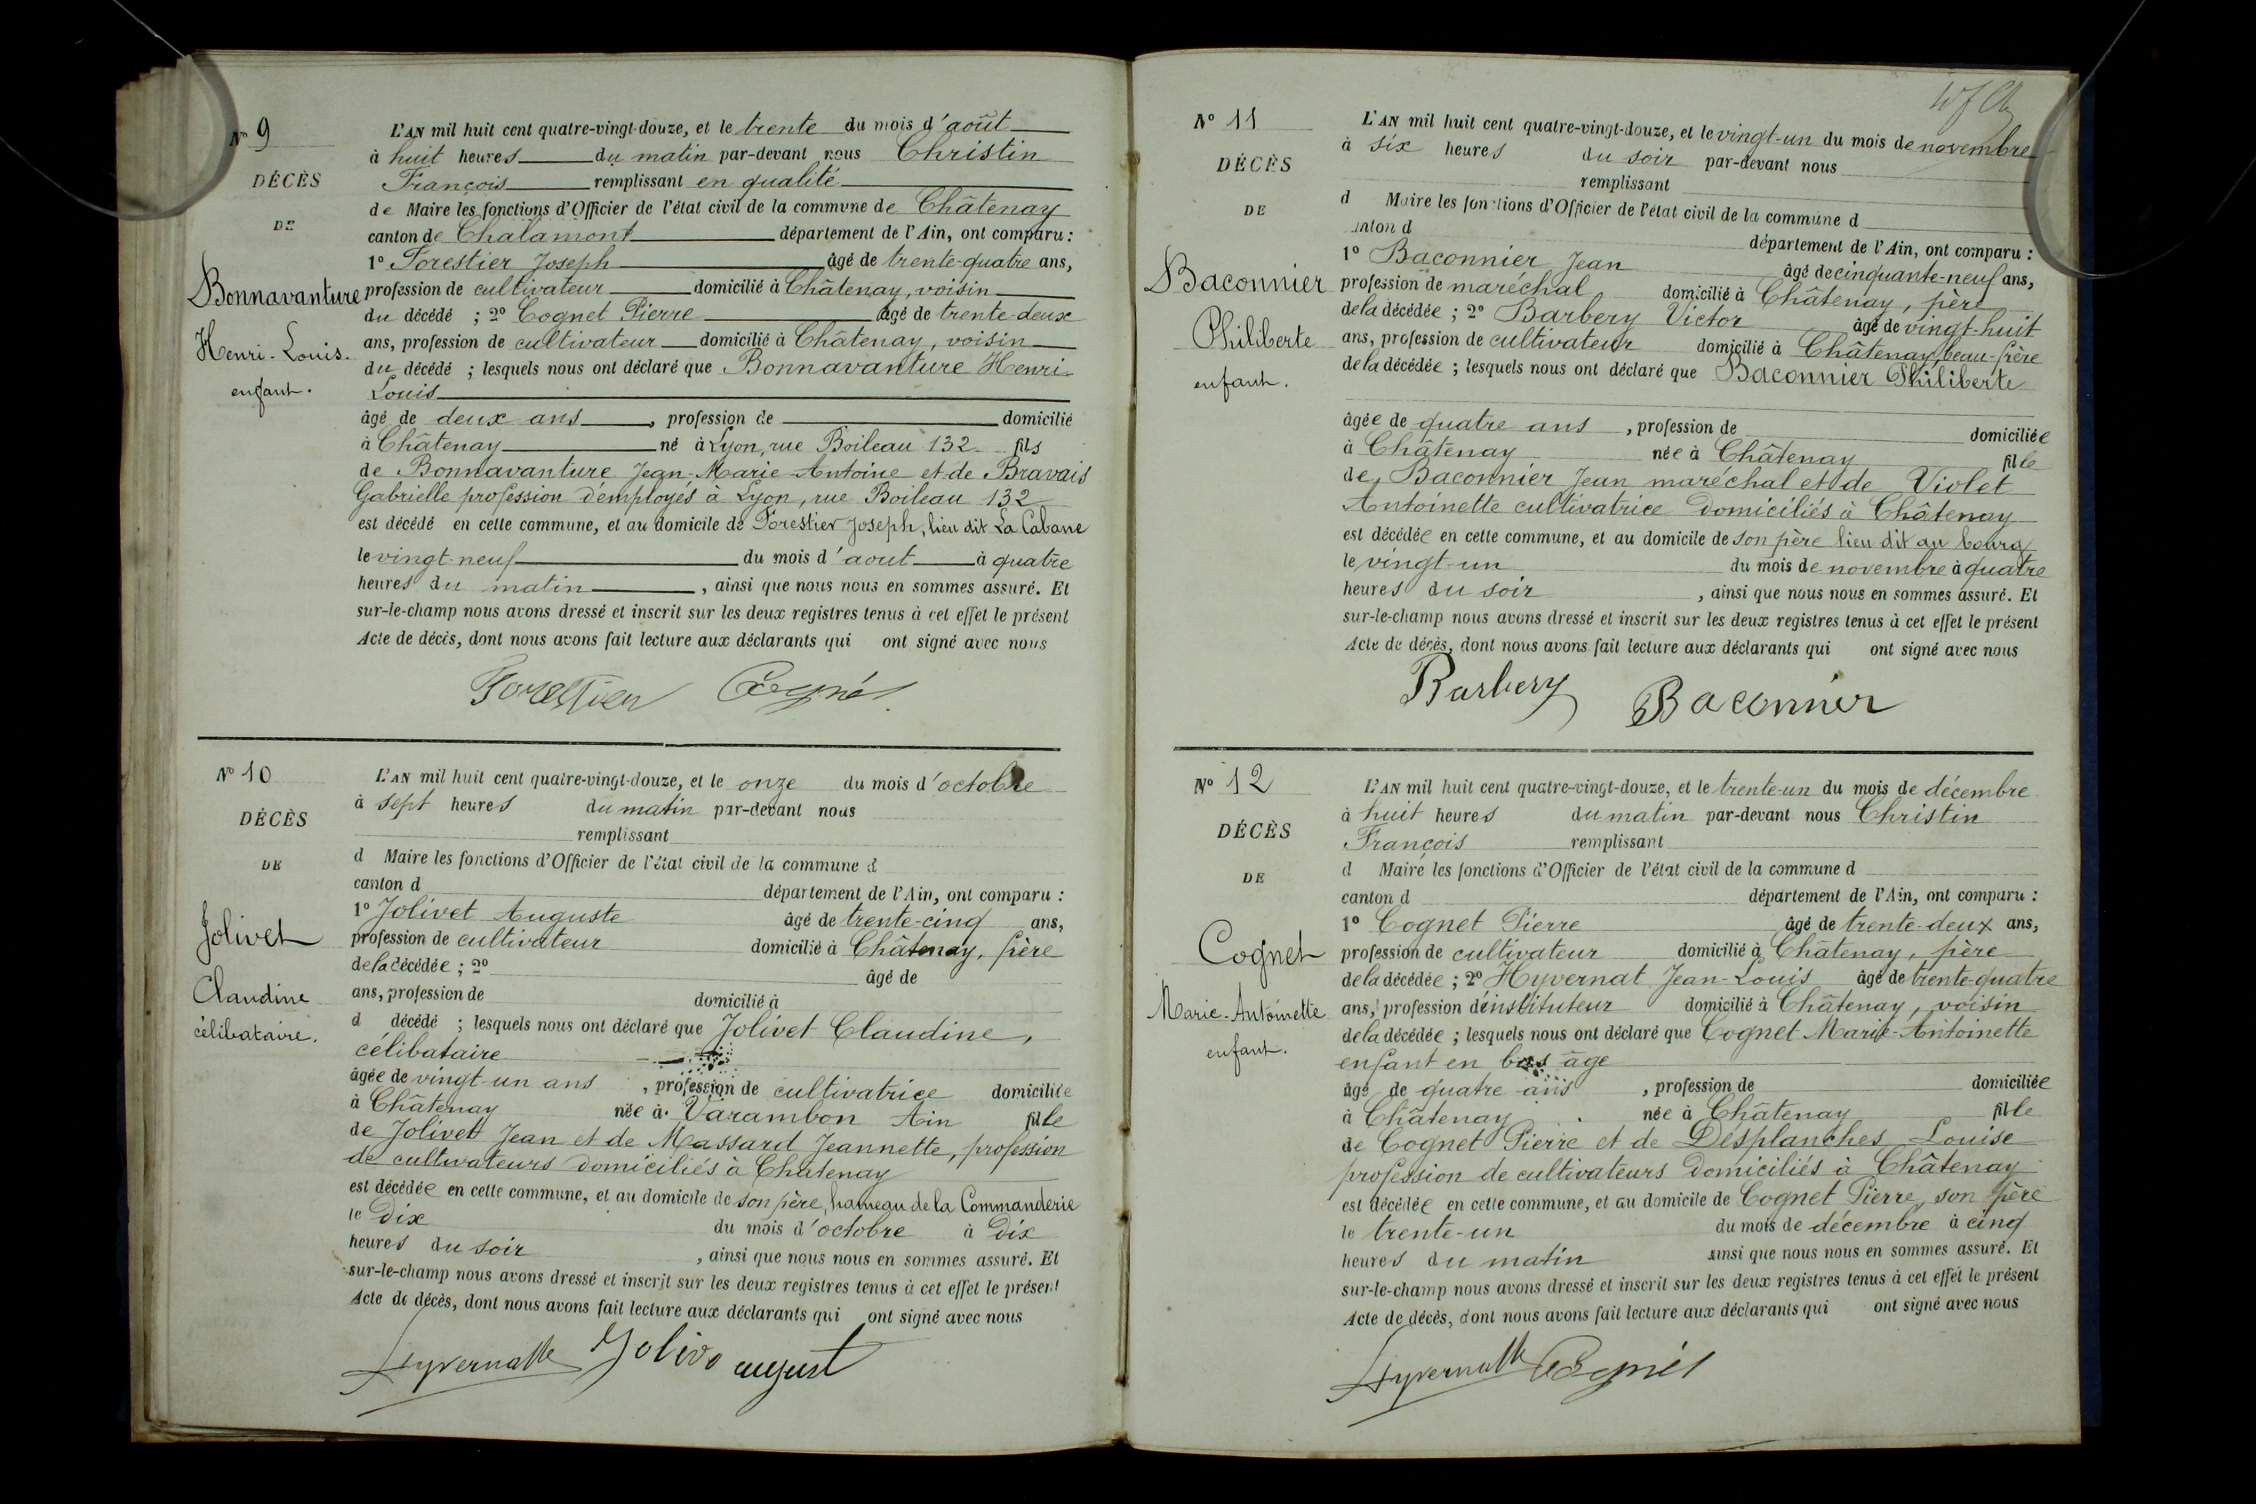 N° 9
DÉCÈS
DE
Bonnavanture
Henri-Louis.
enfant.
L'AN mil huit cent quatre-vingt-douze, et le trente du mois d'août
à huit heures du matin par-devant nous Christin
François remplissant en qualité
de Maire les fonctions d'Officier de l'état civil de la commune de Châtenay
canton de Chalamont département de l'Ain, ont comparu :
1° Forestier Joseph âgé de trente-quatre ans,
profession de cultivateur domicilié à Châtenay, voisin
du décédé ; 2° Cognet Pierre âgé de trente-deux
ans, profession de cultivateur domicilié à Châtenay, voisin
du décédé ; lesquels nous ont déclaré que Bonnavanture Henri-
Louis
âgé de deux ans, profession de domicilié
à Châtenay né à Lyon, rue Boileau 132 fils
de Bonnavanture Jean-Marie-Antoine et de Bravais
Gabrielle profession d'employés à Lyon, rue Boileau 132
est décédé en cette commune, et au domicile de Forestier Joseph, lieu dit La Cabane
le vingt-neuf du mois d'aout à quatre
heures du matin, ainsi que nous nous en sommes assuré. Et
sur-le-champ nous avons dressé et inscrit sur les deux registres tenus à cet effet le présent
Acte de décès, dont nous avons fait lecture aux déclarants qui ont signé avec nous
Forestier Cognet
N° 10
DÉCÈS
DE
Jolivet
Claudine
célibataire.
L'AN mil huit cent quatre-vingt-douze, et le onze du mois d'octobre
à sept heures du matin par-devant nous
remplissant
d Maire les fonctions d'Officier de l'état civil de la commune d
canton d département de l'Ain, ont comparu :
1° Jolivet Auguste âgé de trente-cinq ans,
profession de cultivateur domicilié à Châtenay, frère
de la décédée ; 2° âgé de
ans, profession de domicilié à
d décédé ; lesquels nous ont déclaré que Jolivet Claudine,
célibataire
âgée de vingt-un ans, profession de cultivatrice domiciliée
à Châtenay née à Varambon Ain fille
de Jolivet Jean et de Massard Jeannette, profession
de cultivateurs domiciliés à Chatenay
est décédée en cette commune, et au domicile de son père, hameau de la Commanderie
le dix du mois d'octobre à dix
heures du soir, ainsi que nous nous en sommes assuré. Et
sur-le-champ nous avons dressé et inscrit sur les deux registres tenus à cet effet le présent
Acte de décès, dont nous avons fait lecture aux déclarants qui ont signé avec nous
Hyvernat Jolivo august
N° 11
DÉCÈS
DE
Baconnier
Philiberte
enfant.
L'AN mil huit cent quatre-vingt-douze, et le vingt-un du mois de novembre
à six heures du soir par-devant nous
remplissant
d Maire les fonctions d'Officier de l'état civil de la commune d
anton d département de l'Ain, ont comparu :
1° Baconnier Jean âgé de cinquante-neuf ans,
profession de maréchal domicilié à Châtenay, père
de la décédée ; 2° Barbery Victor âgé de vingt-huit
ans, profession de cultivateur domicilié à Châtenay, beau-frère
de la décédée ; lesquels nous ont déclaré que Baconnier Philiberte
âgée de quatre ans, profession de domiciliée
à Châtenay née à Châtenay fille
de Baconnier Jean maréchal et de Violet
Antoinette cultivatrice domiciliés à Châtenay
est décédée en cette commune, et au domicile de son père lieu dit au bourg
le vingt-un du mois de novembre à quatre
heures du soir, ainsi que nous nous en sommes assuré. Et
sur-le-champ nous avons dressé et inscrit sur les deux registres tenus à cet effet le présent
Acte de décès, dont nous avons fait lecture aux déclarants qui ont signé avec nous
Barbery Baconnier
N° 12
DÉCÈS
DE
Cognet
Marie-Antoinette
enfant.
L'AN mil huit cent quatre-vingt-douze, et le trente-un du mois de décembre
à huit heures du matin par-devant nous Christin
François remplissant
d Maire les fonctions d'Officier de l'état civil de la commune d
canton d département de l'Ain, ont comparu :
1° Cognet Pierre âgé de trente-deux ans,
profession de cultivateur domicilié à Châtenay, père
de la décédée ; 2° Hyvernat Jean-Louis âgé de trente-quatre
ans, profession d'instituteur domicilié à Châtenay, voisin
de la décédée ; lesquels nous ont déclaré que Cognet Marie-Antoinette
enfant en bas âge
âgé de quatre ans, profession de domiciliée
à Châtenay née à Châtenay fille
de Cognet Pierre et de Desplanches Louise
profession de cultivateurs domiciliés à Châtenay
est décédée en cette commune, et au domicile de Cognet Pierre, son père
le trente-un du mois de décembre à cinq
heures du matin ainsi que nous nous en sommes assuré. Et
sur-le-champ nous avons dressé et inscrit sur les deux registres tenus à cet effet le présent
Acte de décès, dont nous avons fait lecture aux déclarants qui ont signé avec nous
Hyvernat Cognet